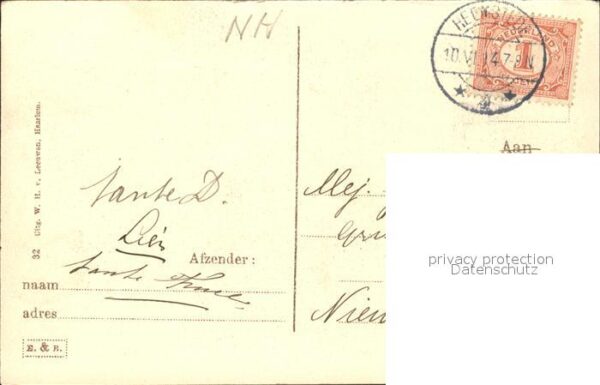 NH
HEEMSTEDE
10.VI.14.7-8N
4
NEDERLAND
1
Aan
32 Uitg. W. H. v. Leeuwen, Haarlem.
tante D.
Mej.
Afzender:
tante
naam
adres
Nieu
E. & B.
privacy protection
Datenschutz